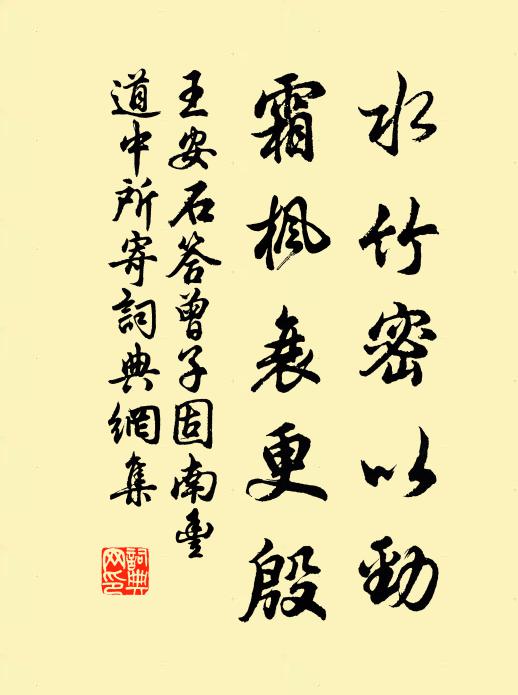 水竹密以勁
霜楓衰更殷
王安石答曾子固南豐
道中所寄詞典網集
詞典
网印